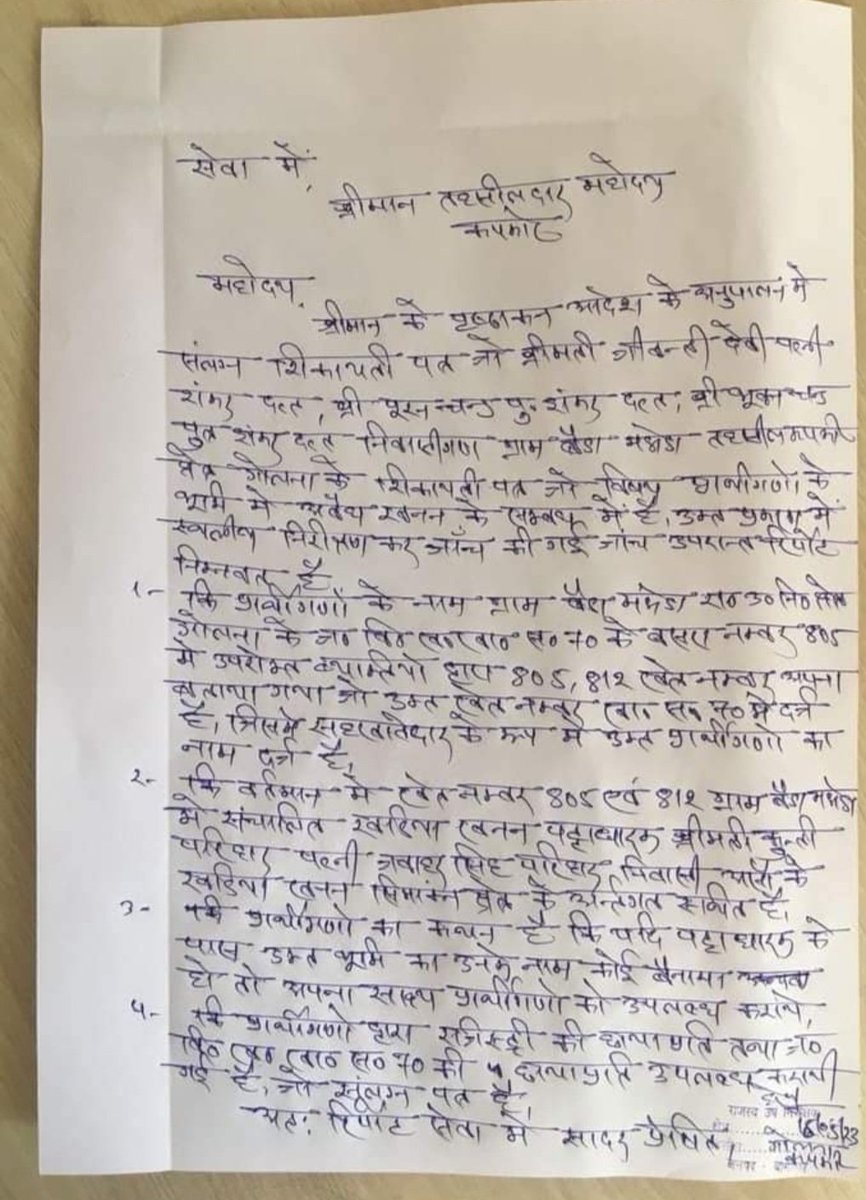 सेवा में,
श्रीमान तहसीलदार महोदय
कपकोट
महोदय,
श्रीमान के पृष्ठाकन आदेश के अनुपालन मे
संलग्न शिकायती पत्र जो श्रीमती जीवन्ती देवी पत्नी
शंकर दत्त, श्री पूरन चन्द्र पु० शंकर दत्त, श्री भुवन चन्द्र
पुत्र शंकर दत्त निवासीगण ग्राम बैडा मझेडा तहसील कपकोट
क्षेत्र गोलना के शिकायती पत्र जो विषय प्रार्थीगणो के
भूमि मे अवैध खनन के सम्बन्ध में है, उक्त प्रकरण में
स्थलीय निरीक्षण कर जाँच की गई जांच उपरान्त रिपोर्ट
निम्नवत है,
1- कि प्रार्थीगणों के नाम ग्राम बैडा मझेडा रा० उ० नि० क्षेत्र
गोलना के ज० वि० ख० खा० स० 70 के खसरा नम्बर 805
मे उपरोक्त व्यक्तियो द्वारा 805, 812 खेत नम्बर अपना
बताया गया जो उक्त खेत नम्बर खा० स० 70 मे दर्ज
है, जिसमे सहखातेदार के रूप मे उक्त प्रार्थीगणो का
नाम दर्ज है,
2- कि वर्तमान मे खेत नम्बर 805 एवं 812 ग्राम बैडा मझेडा
मे संचालित खडिया खनन पट्टाधारक श्रीमती कुन्ती
परिहार पत्नी जवाहर सिंह परिहार, निवासी के
खडिया खनन सिमांकन क्षेत्र के अन्तर्गत स्थित है,
3- कि प्रार्थीगणो का कथन है कि यदि पट्टाधारक के
पास उक्त भूमि का उनके नाम कोई बैनामा
हो तो अपना साक्ष्य प्रार्थीगणो को उपलब्ध कराये,
4- कि प्रार्थीगणो द्वारा रजिस्ट्री की छायाप्रति तथा ज०
वि० ख० खा० स० 70 की छायाप्रति उपलब्ध करायी
गई है, जो संलग्न पत्र है,
अत: रिपोर्ट सेवा मे सादर प्रेषित,
राजस्व उप निरीक्षक
16/05/23
गोलना
कपकोट